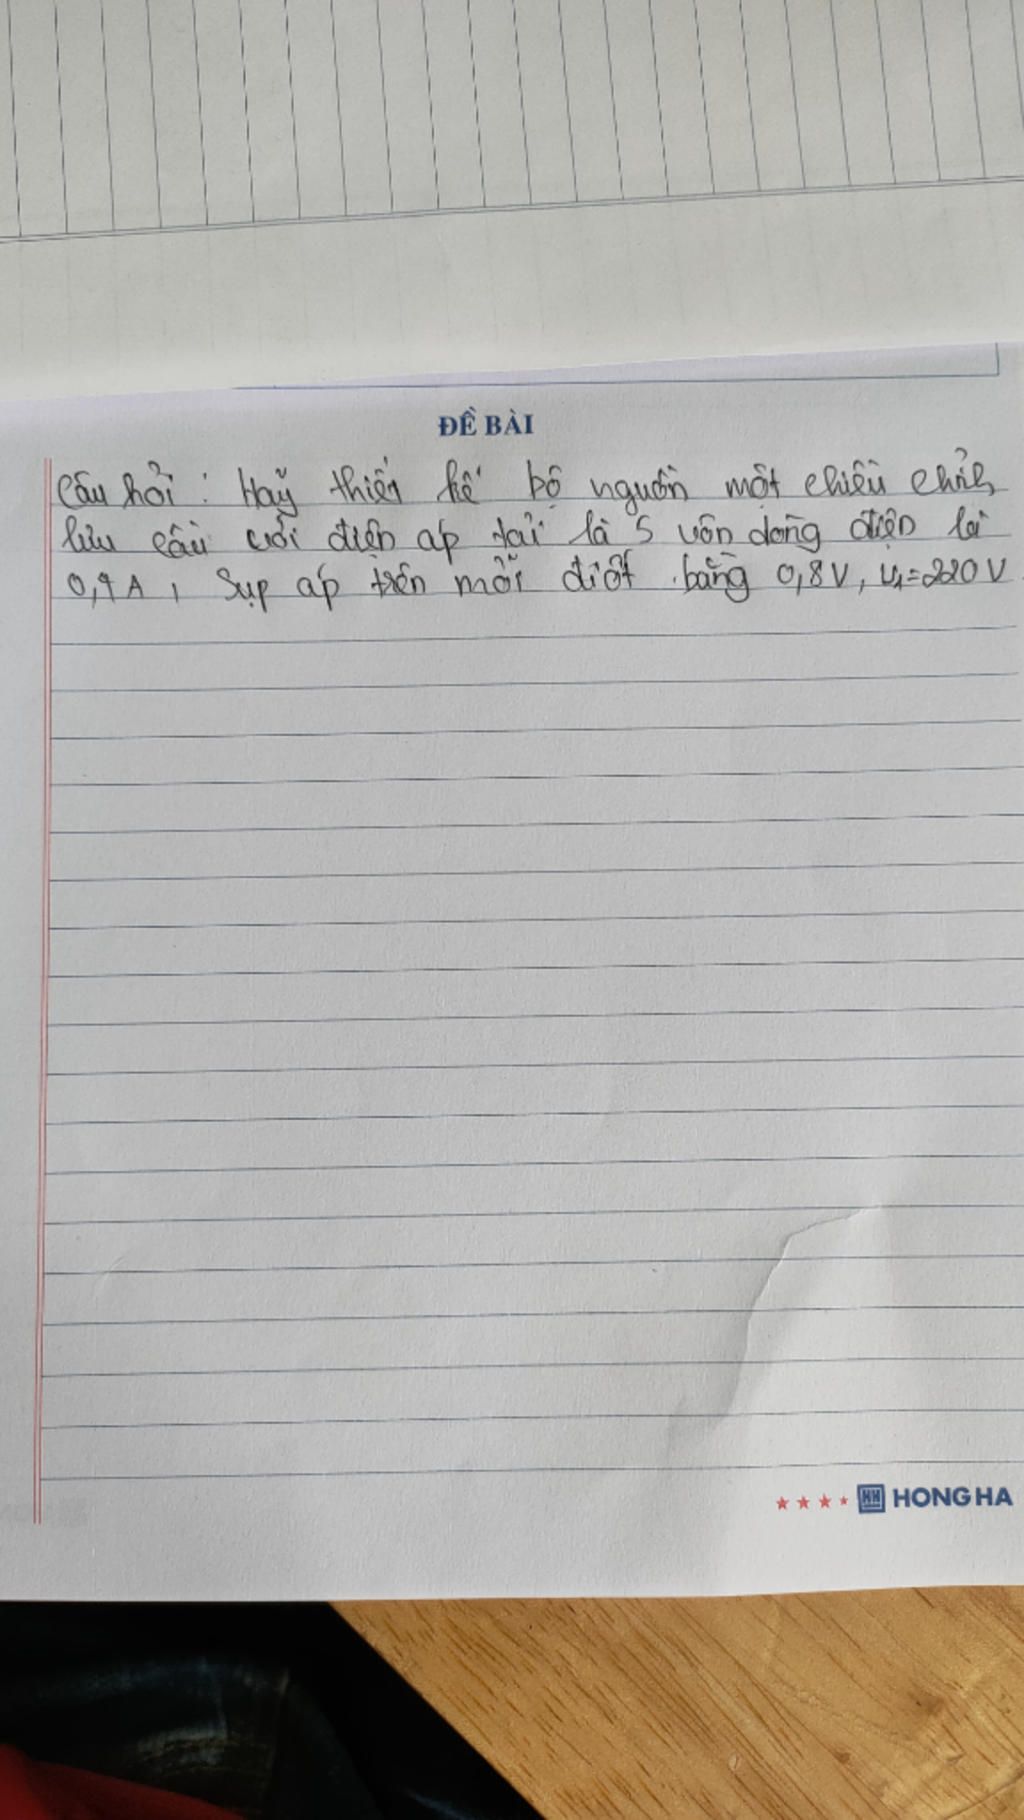 ĐỀ BÀI
Câu hỏi : Hãy thiết kế bộ nguồn một chiều chỉnh
lưu cầu với điện áp tải là 5 vôn dòng điện là
0,4A, Sụp áp trên mỗi điốt bằng 0,8V, U₁=220V
HONG HA